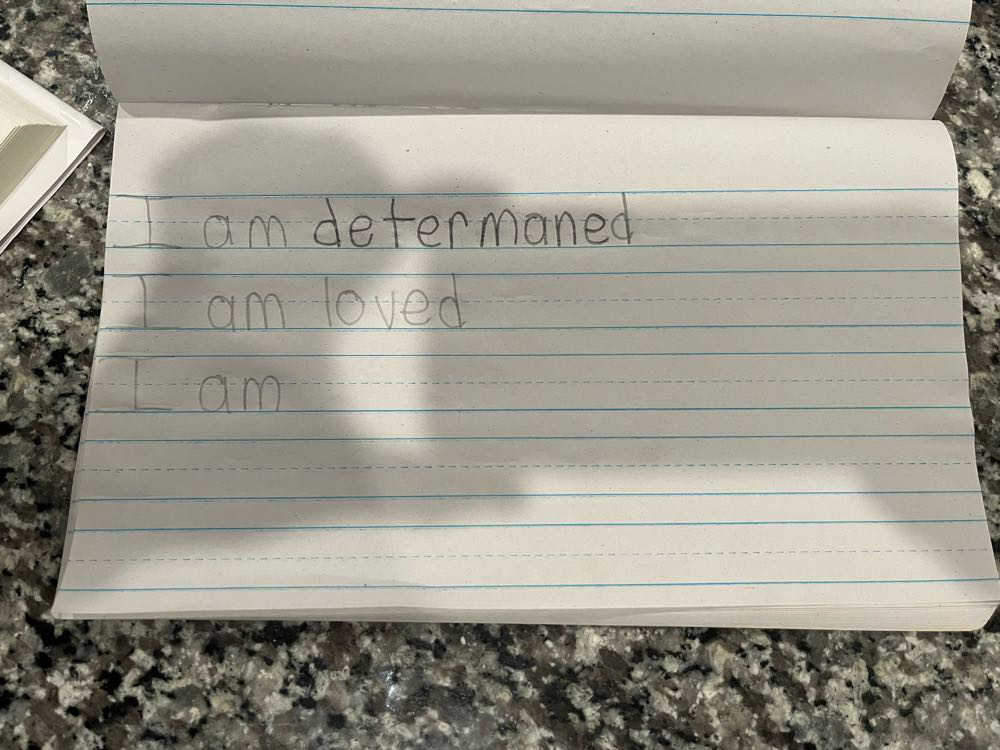 I am determaned
I am loved
I am